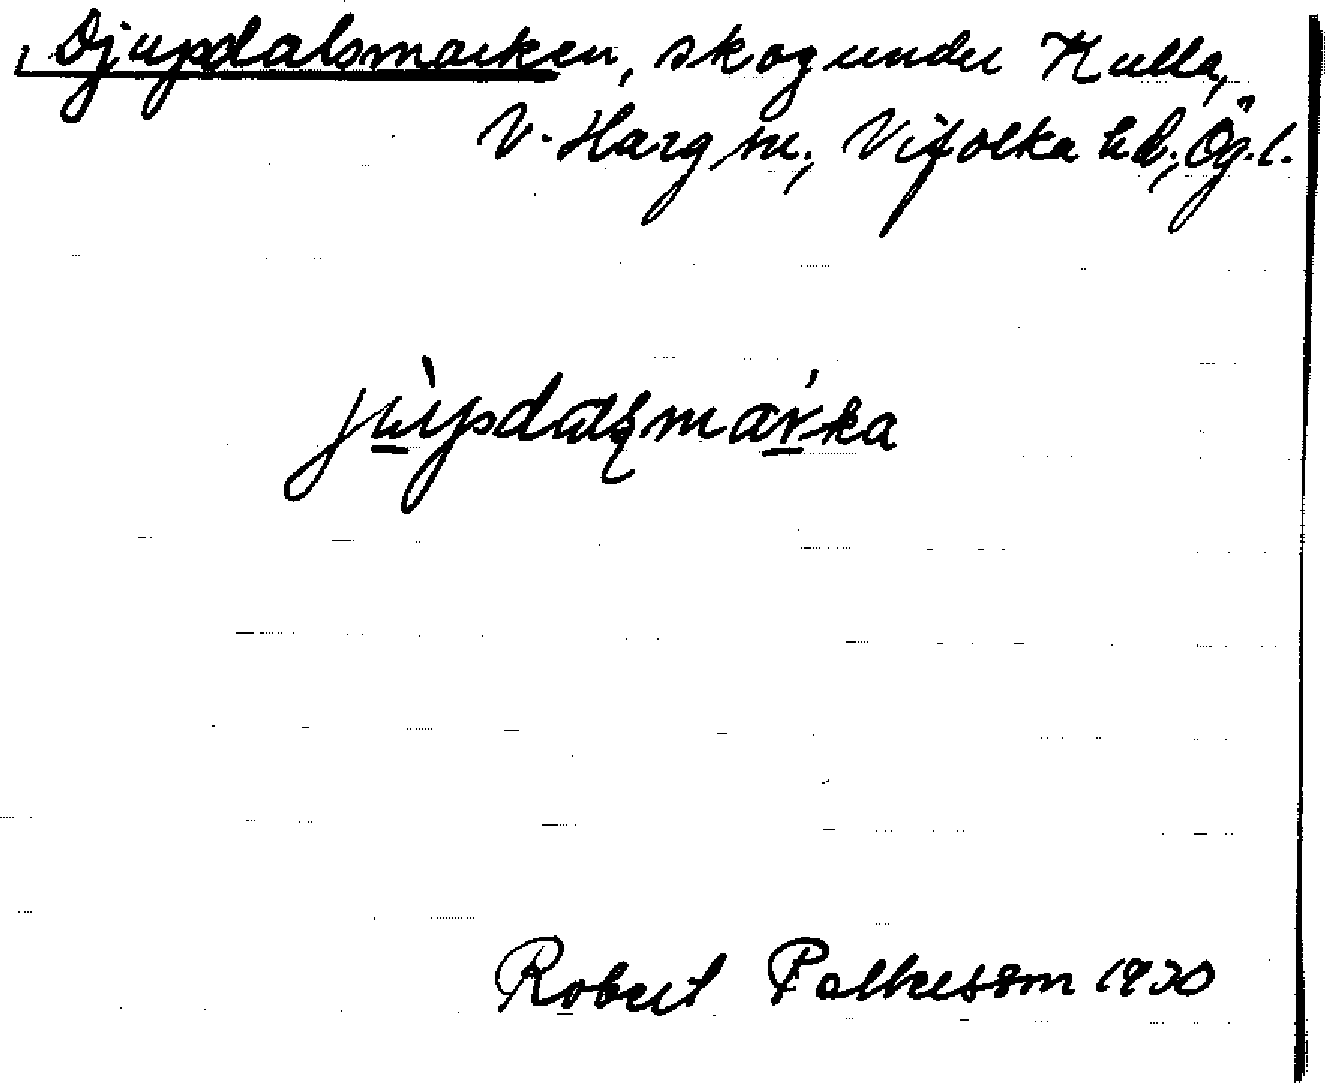 Djupdalsmarken, skog under Kulla,
V. Harg sn., Vifolka hd., Ög. l.
jùpdalsmárka
Robert 1930